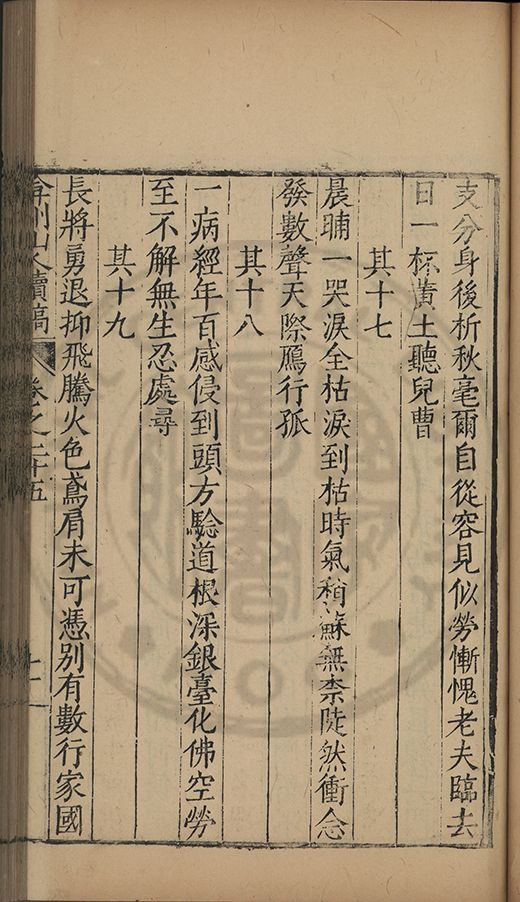 支分身後析秋毫爾自從容見似勞慚愧老夫臨去
日一杯黃土聽兒曹
其十七
晨晡一哭淚全枯淚到枯時氣稍蘇無柰陡然衝念
發數聲天際鴈行孤
其十八
一病經年百感侵到頭方驗道根深銀臺化佛空勞
至不解無生忍處尋
其十九
長將勇退抑飛騰火色鳶肩未可憑別有數行家國
弇州山人續稿 卷之二十五